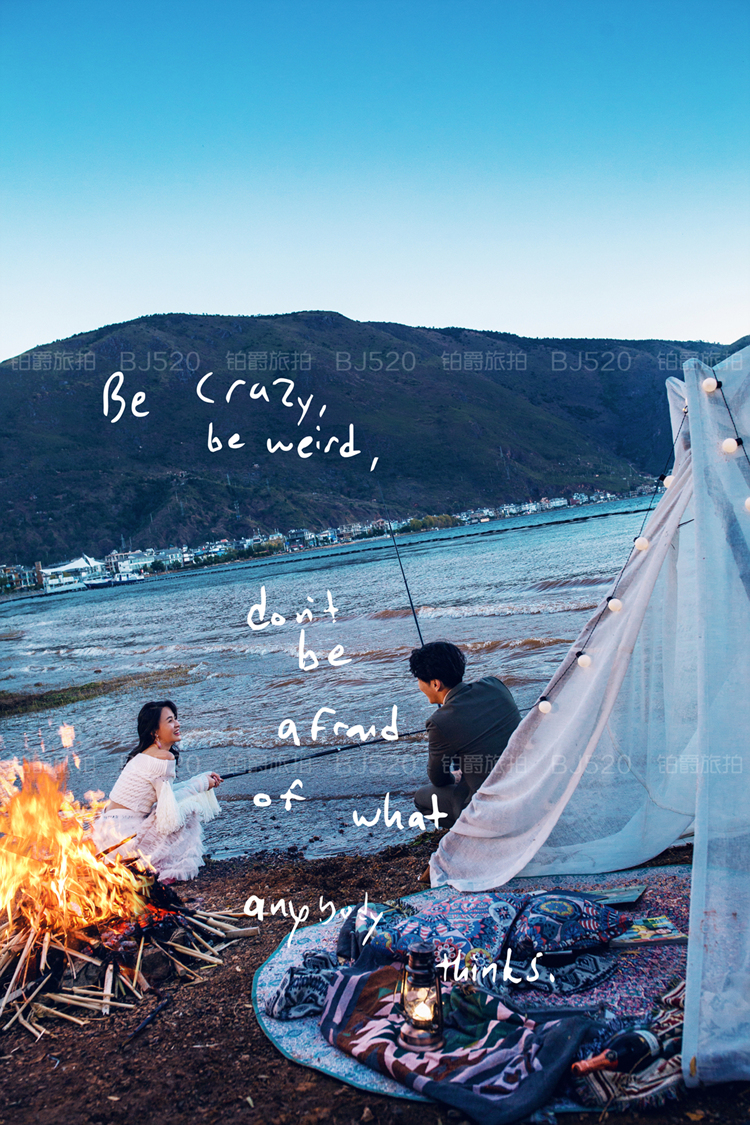 铂爵旅拍 BJ520 铂爵旅拍 BJ520 铂爵旅拍 BJ520 铂爵旅拍
Be crazy,
be weird,
don't
be
afraid
of what
anybody
thinks.
铂爵旅拍 BJ520 铂爵旅拍 BJ520 铂爵旅拍 BJ520 铂爵旅拍